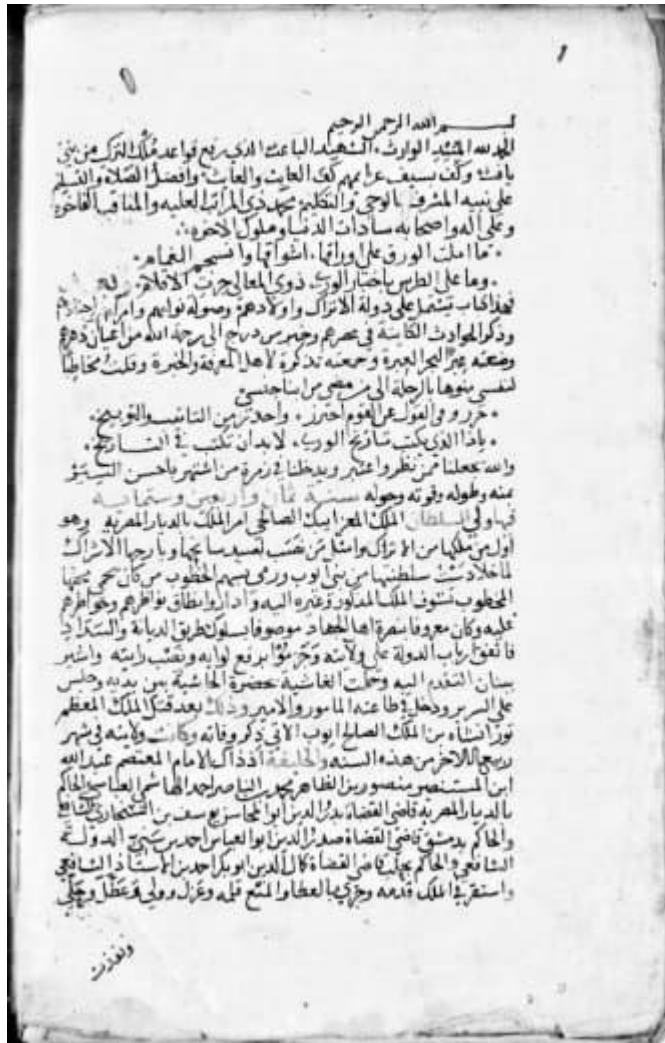 ١
بسم الله الرحمن الرحيم
الحمد لله المبيد الوارث، الشهيد الباعث الذي رفع قواعد ملك الترك من بني
يافث وكف بسيف عزايمهم كف العايث والعابث وافضل الصلاة والتسليم
على نبيه المشرف بالوحي والتكليم محمد ذي المراتب العليه والمناقب الفاخره
وعلى اله واصحابه سادات الدنيا وملوك الاخره
ما املت الورق على اوراقها اشواقها وانسجم الغمام
وما على الطرس باخبار الورى ذوي المعالي جرت الاقلام
فهذا كتاب يشتمل على دولة الاتراك واولادهم وصولة نوابهم وامرايهم
وذكر الحوادث الكاينة في عصرهم وخبر من درج الى رحمة الله من اعيان دهرهم
وضعته عبرا لبحر العبرة وجمعته تذكرة لاهل المعرفة والخبرة وقلت مخاطبا
لنفسي منوها بالرحلة الى من مضى من ابنا جنسي
حرر وفي القول عن القوم احترز واحذر من التانيب والتوبيخ
ياذا الذي يكتب تاريخ الورى لا بد ان تكتب في التاريخ
والله يجعلنا ممن نظر واعتبر ويدخلنا في زمرة من اشتهر باحسن السير
بمنه وطوله وقوته وحوله سنة ثمان واربعين وستمايه
فيها ولي السلطان الملك المعز ايبك الصالحي امر الملك بالديار المصريه وهو
اول من ملكها من الاتراك وامتثل من نصب لصيد سانحها وبارحها الاشراك
لما خلا دست سلطنتها من بني ايوب ورمى بسهم الخطوب من كان يحمي جنتها
المخطوب تشوف الملك المذكور وغيره اليه واداروا نطاق نواظرهم وخواطرهم
عليه وكان معروفا بنصرة اهل الجهاد موصوفا بسلوك طريق الديانة والسداد
فاتفق ارباب الدولة على ولايته وجزموا برفع لوايه ونصب رايته واشير
ببنان التقدم اليه وحملت الغاشية بحضرة الحاشية بين يديه وجلس
على السرير ودخل في طاعته المامور والامير وذلك بعد قتل الملك المعظم
توران شاه بن الملك الصالح ايوب الاتي ذكر وفاته وكانت ولايته في شهر
ربيع الاخر من هذه السنه والخليفة اذ ذاك الامام المعتصم عبد الله
ابن المستنصر منصور بن الظاهر محمد بن الناصر احمد الهاشمي العباسي والحاكم
بالديار المصريه قاضي القضاة بدر الدين ابو المحاسن يوسف بن السنجاري الشافعي
والحاكم بدمشق قاضي القضاة صدر الدين ابو العباس احمد بن سني الدولة
الشافعي والحاكم بحلب قاضي القضاة كمال الدين ابو بكر احمد بن الاستاذ الشافعي
واستقر في الملك قدمه وجرى بالعطا والمنع قلمه وعزل وولى وعطل وحلى
ونفذت